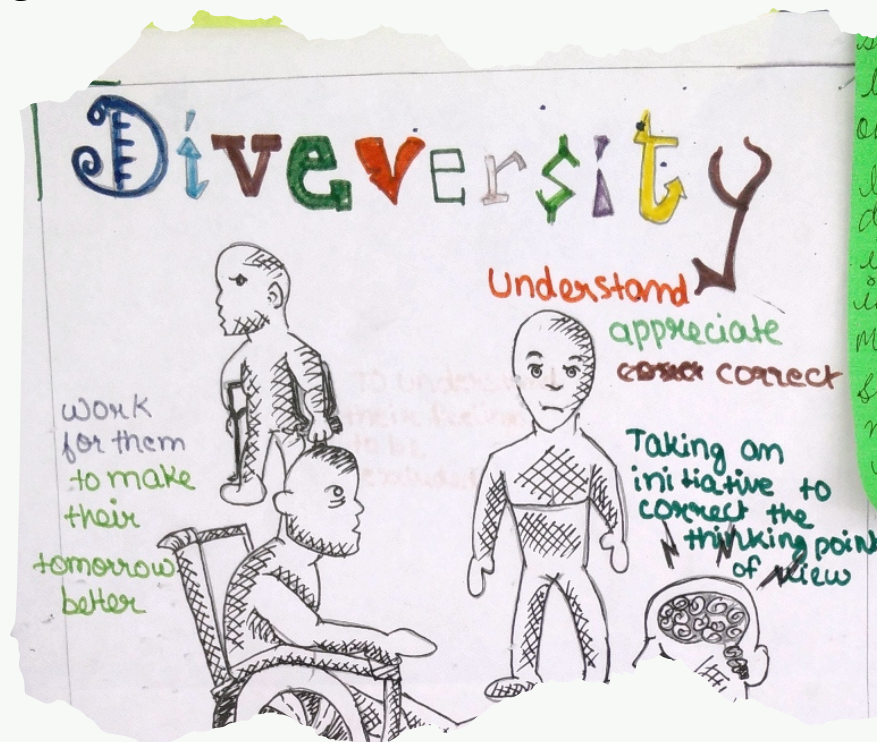 Diveversity
understand
appreciate
correct
work
for them
to make
their
tomorrow
better
Taking an
initiative to
correct the
thinking point
of view